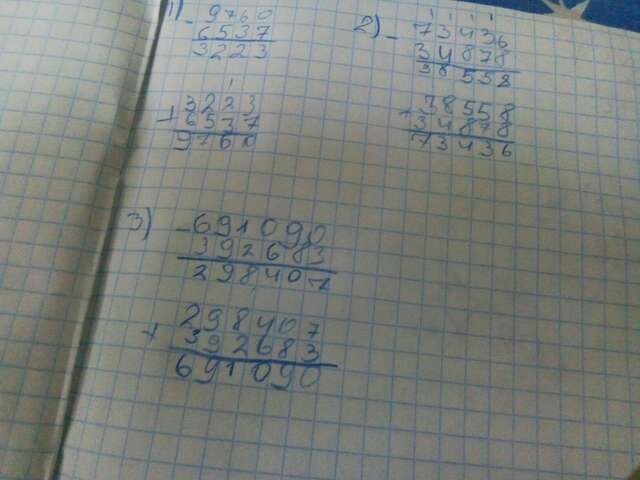 1) - 9760
6537
3223
+ 3223
6537
9760
2) - 73436
34878
38558
+ 38558
34878
73436
3) - 691090
392683
298407
+ 298407
392683
691090